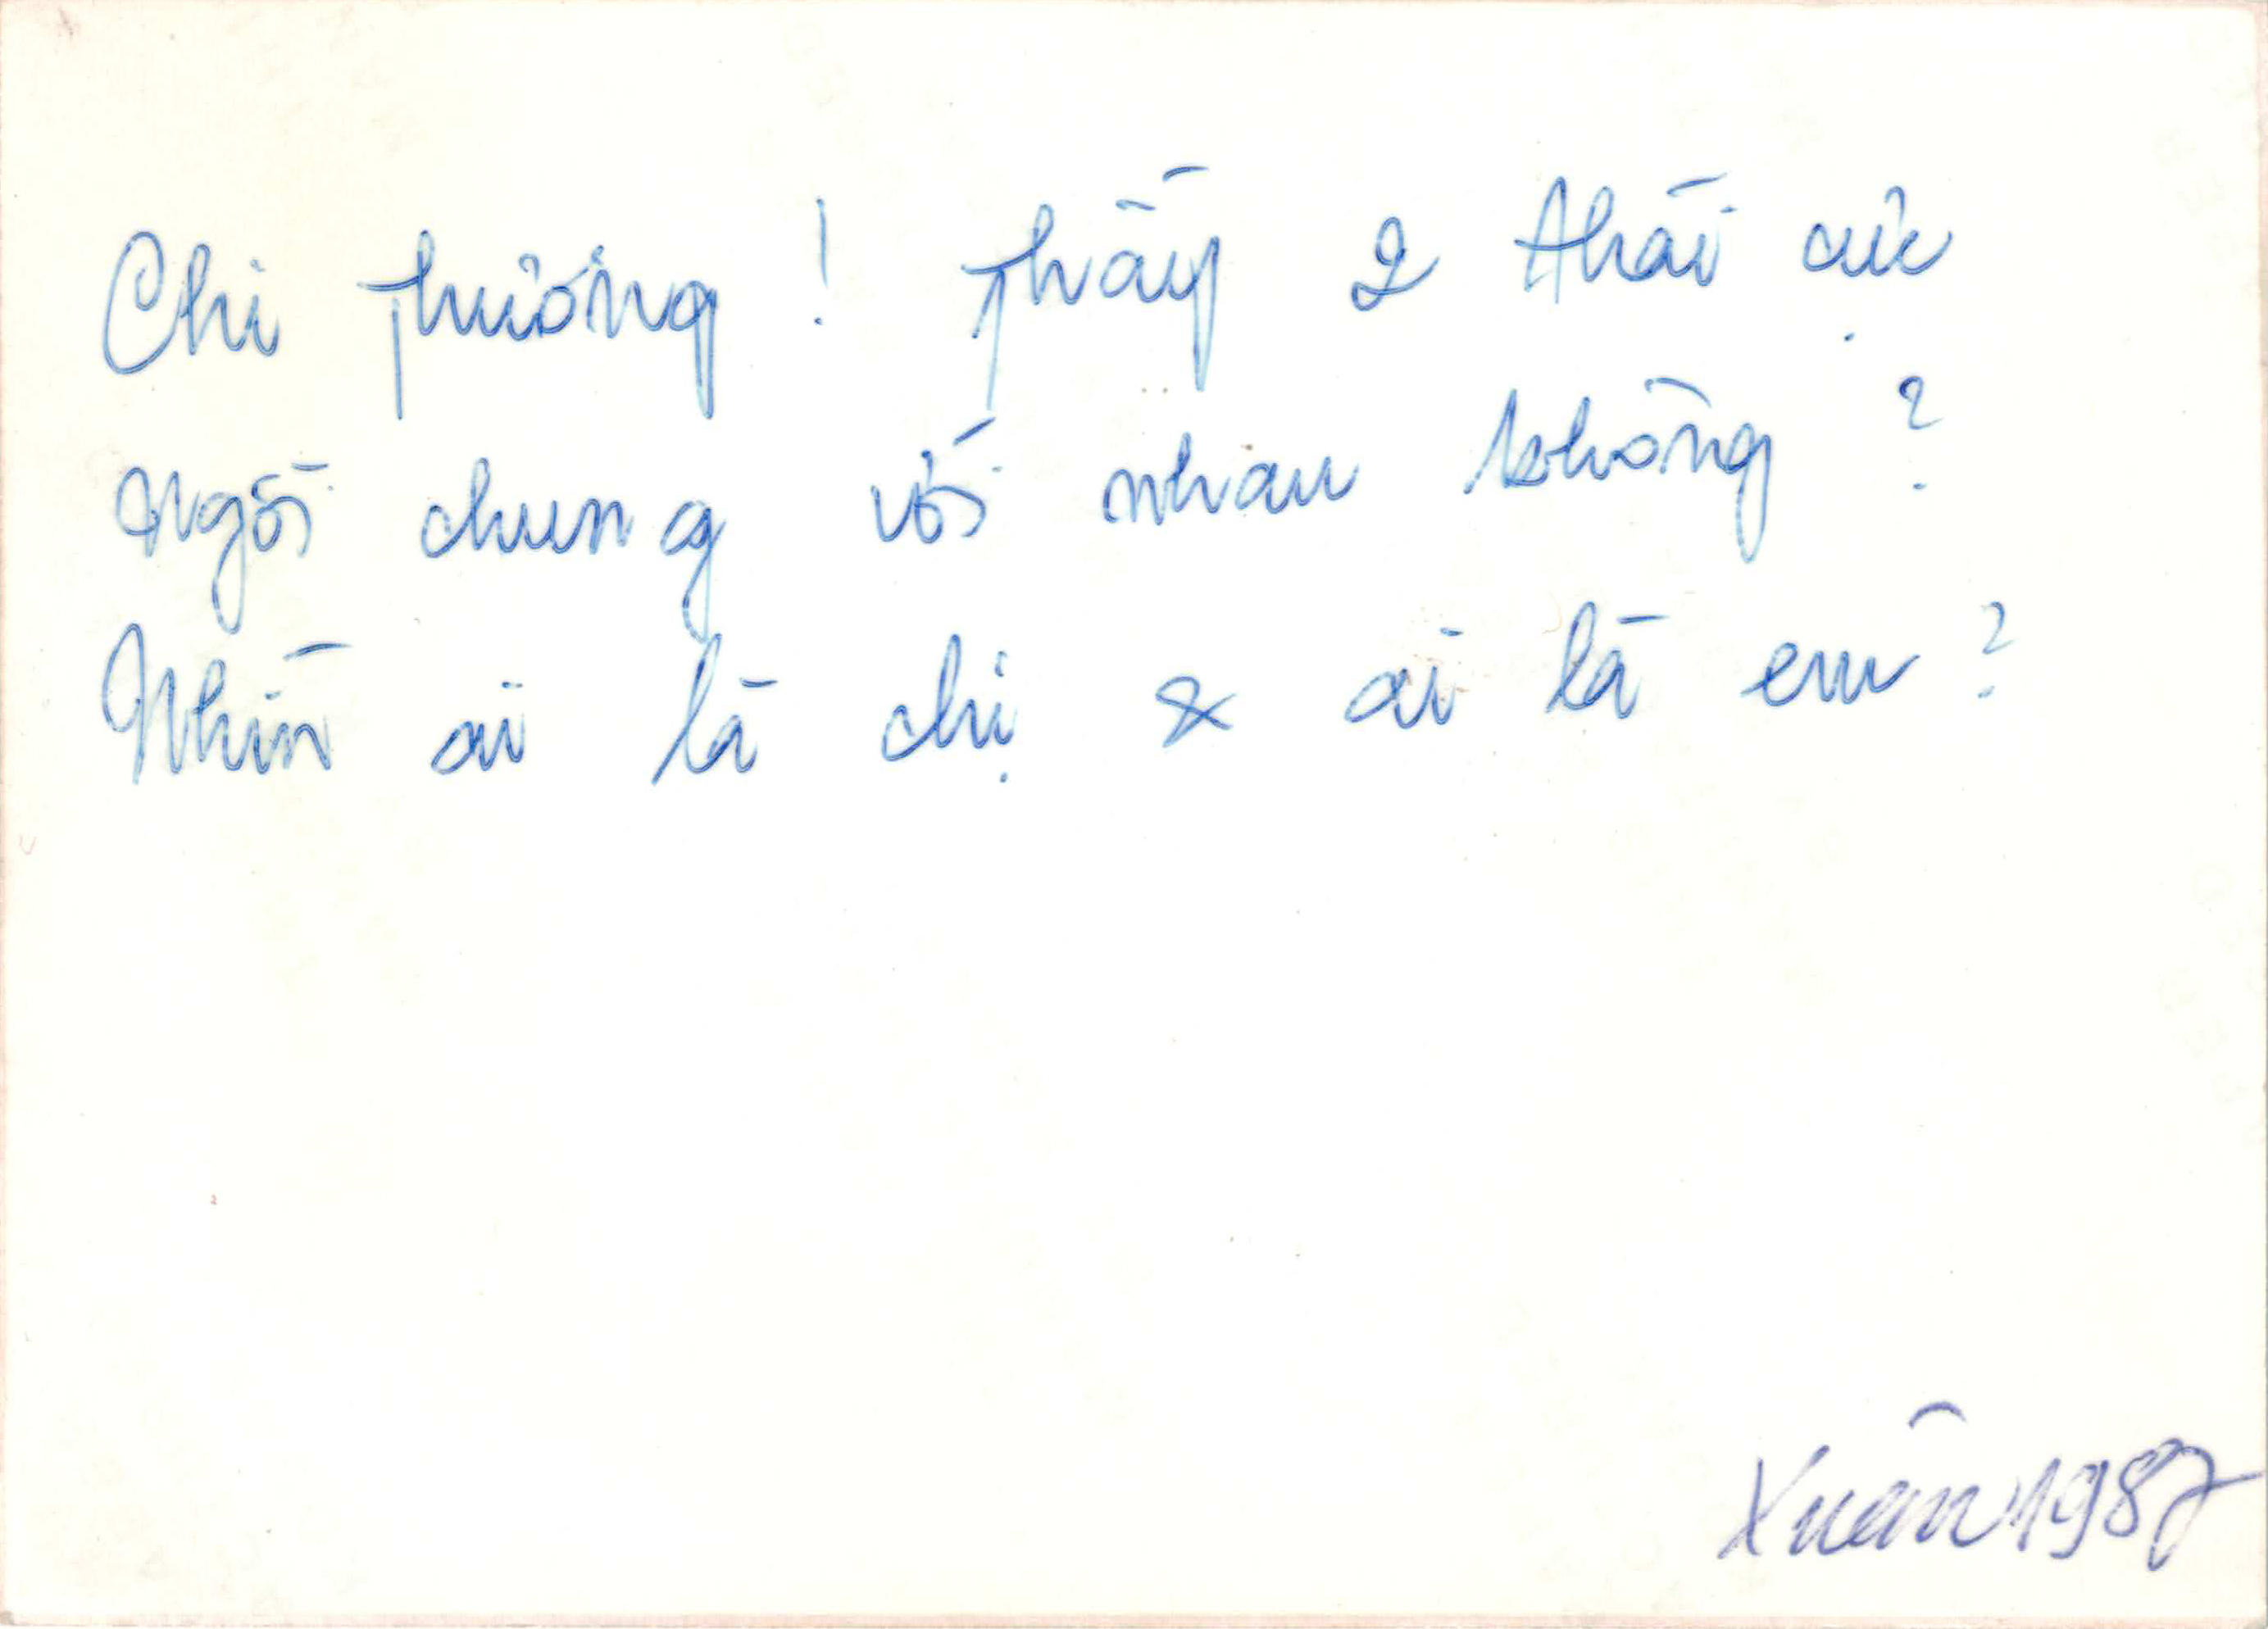 Chi Phương! Thấy 2 thái cực
ngồi chung với nhau không?
Nhìn ai là chị & ai là em?
Xuân 1987